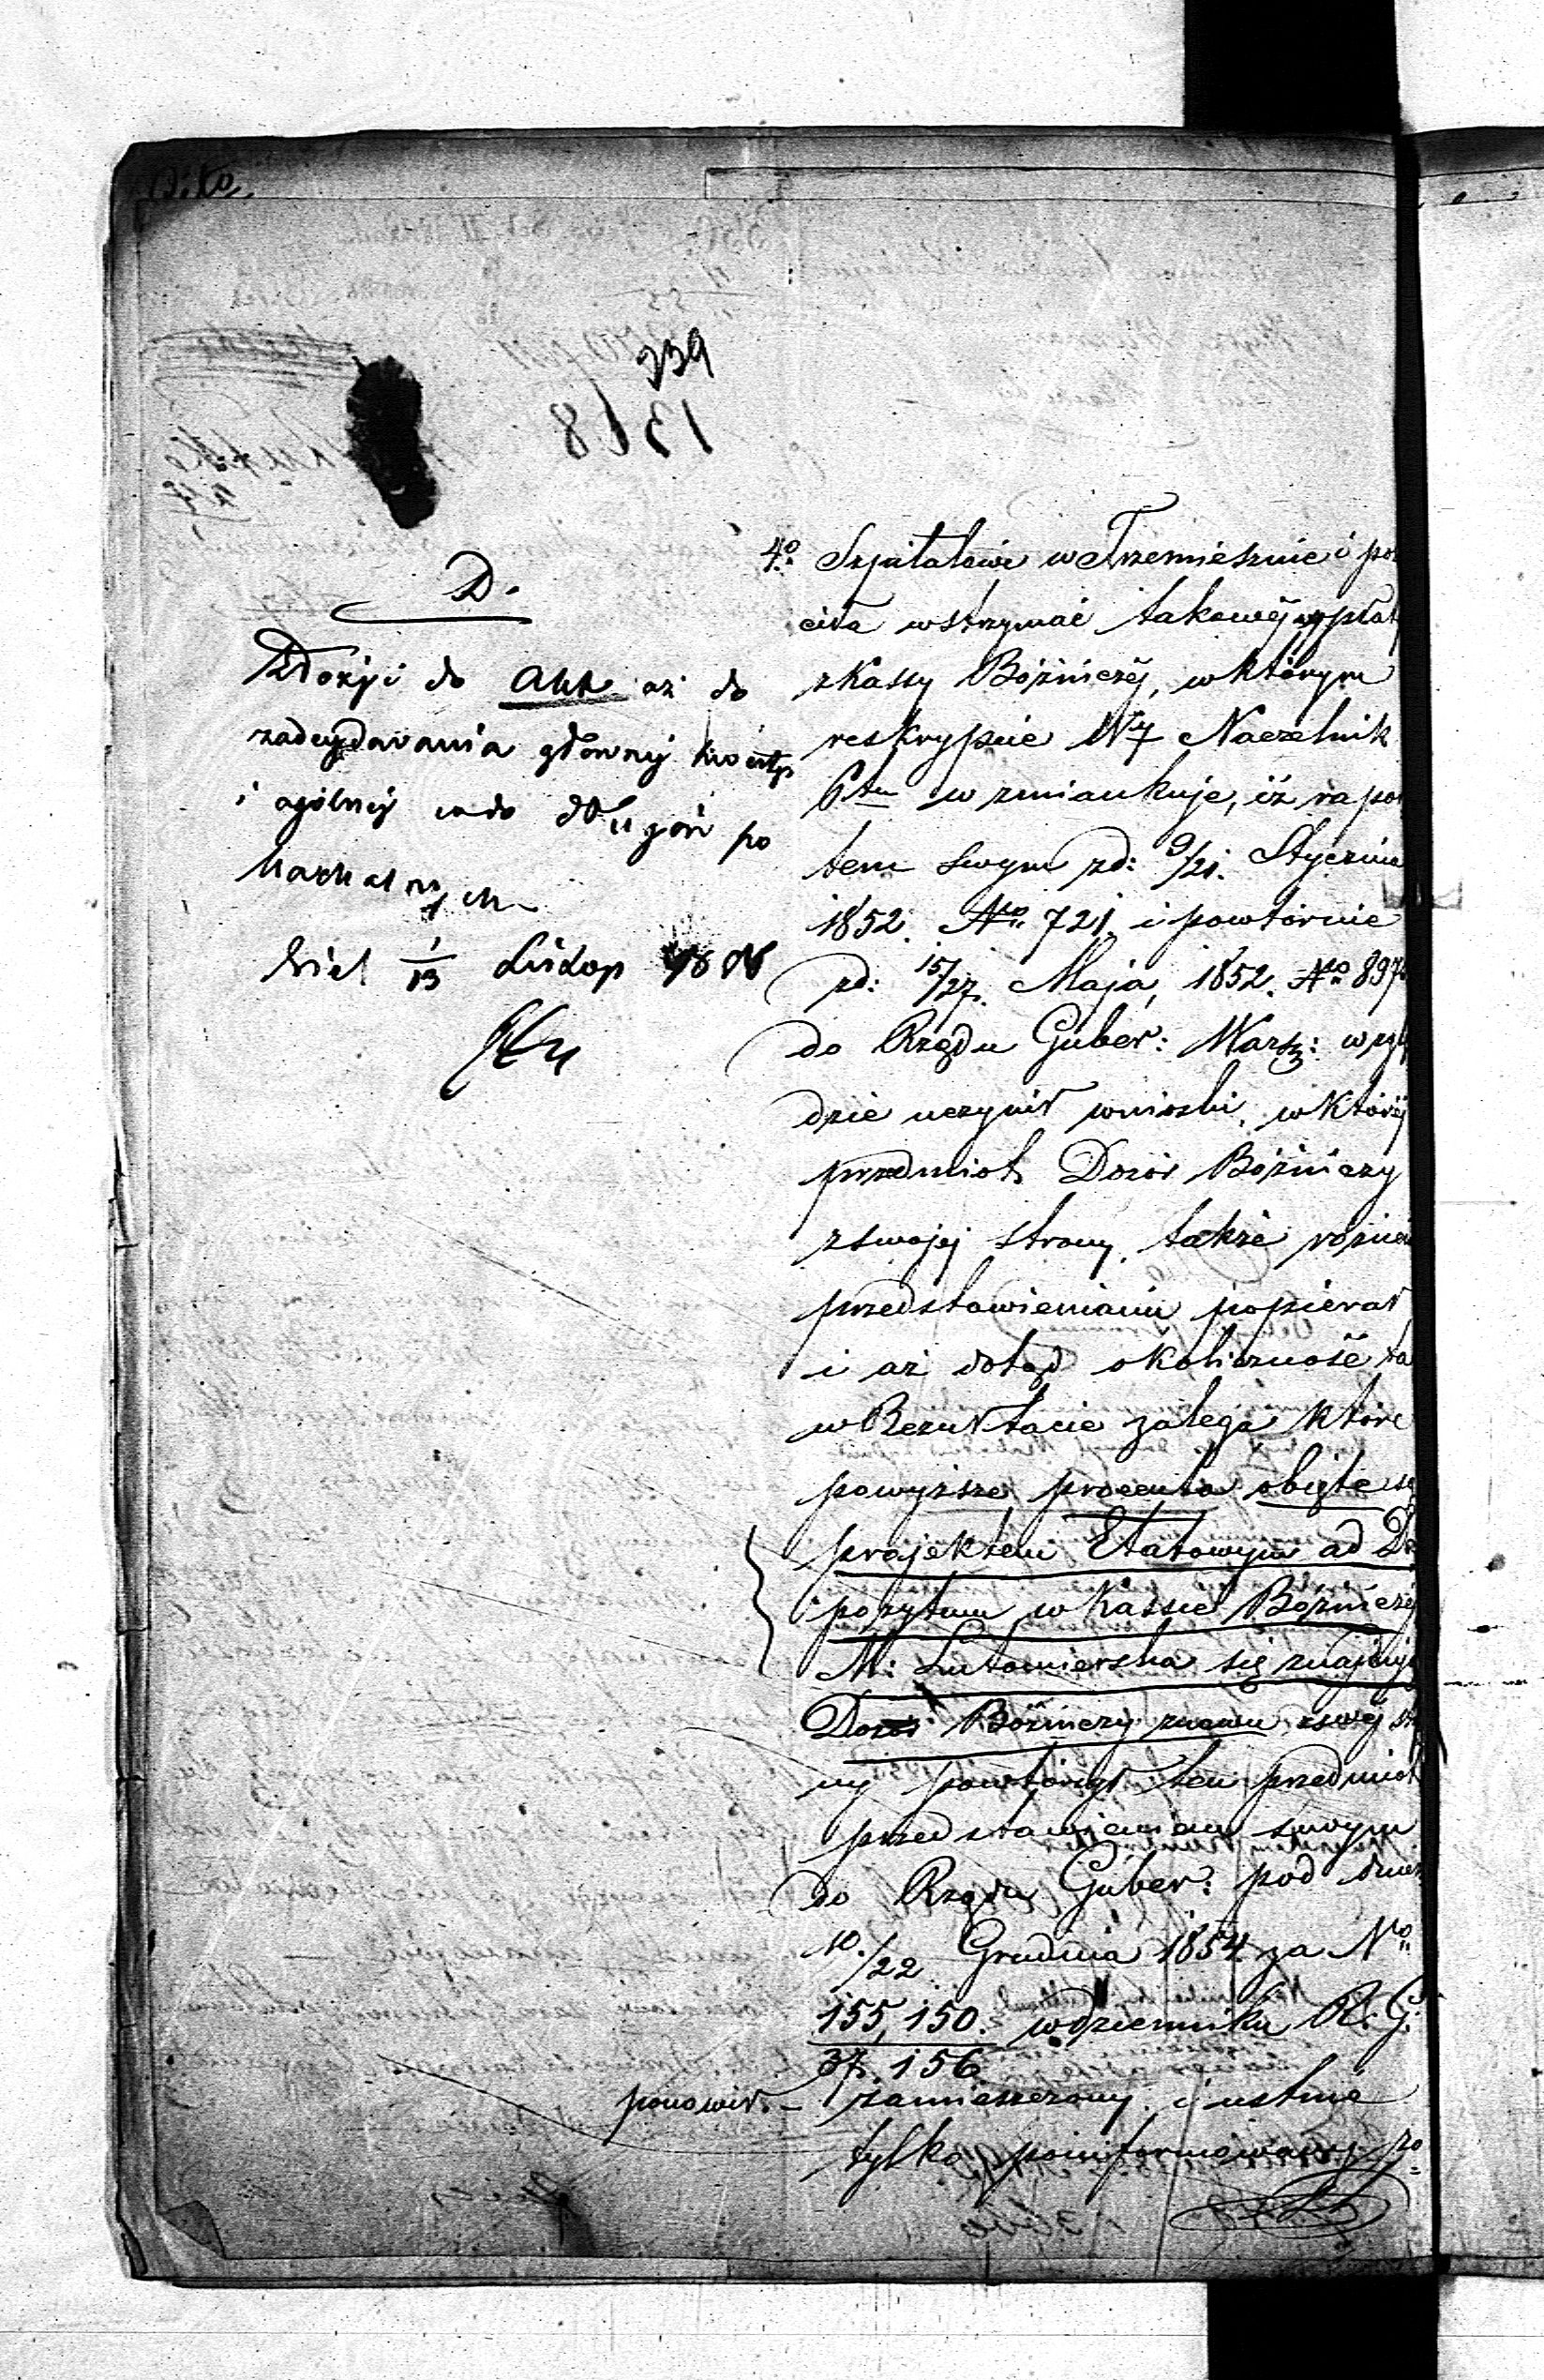 239
1368
D.
Złożyć do Akt aż do
zadecydowania głównej kwestyi
i ogólnej co do długów po
klasztornych
13 Listop
4o Szpitalowi w Trzemesznie i po
ciła wstrzymać takowéj wypłat
z Kassy Bóźniczéj, w którym
reskrypcie W. Naczelnik
Ptu wzmiankuje, iż rapor
tem swym zd: 9/21. Stycznia
1852. No 721. i powtórnie
zd: 15/27. Maja, 1852. No 897
do Rządu Guber: Warsz: wzglę
dzie uczynił wnioski, w któréj
przedmiot Dozór Bóźniczy
z swojej strony także
przedstawieniami popierał
i aż dotąd okoliczność ta
w Rezultacie zalega które
powyższe procenta objęte są
projektem Etatowym ad De
pozytum w Kassie Bóźniczéj
M: Lutomierska się znajduje
Dozór Bóźniczy znowu z swéj stro
ny powtórzył ten przedmiot
przedstawieniem swoym
do Rządu Guber: pod dniem
10/22 Grudnia 1854 za No
155,150. w dzienniku R. G.
37.156
ponowił. – zamieszczony i ustnie
tylko poinformowany zo=